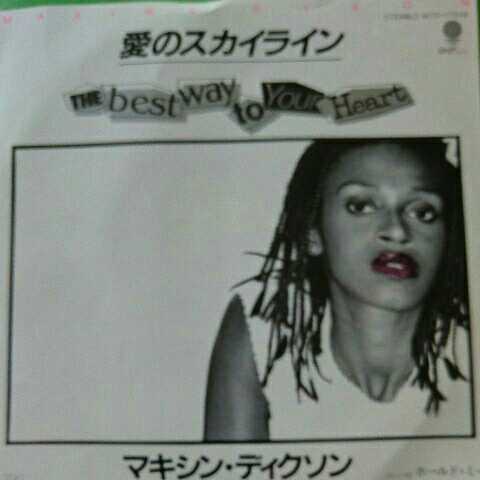 MAXINE DIXON
愛のスカイライン
THE best way to YOUR Heart
マキシン・ディクソン
ホールド・ミー